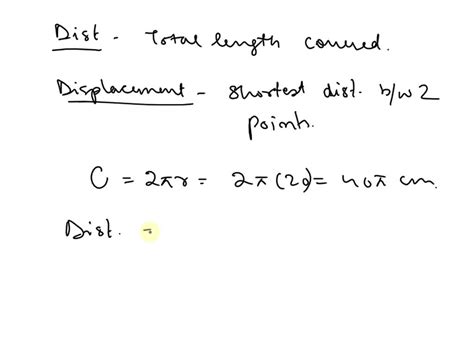 Dist - Total length covered.
Displacement - Shortest dist. b/w 2
points.
C = 2πr = 2π(20) = 40π cm.
Dist. =